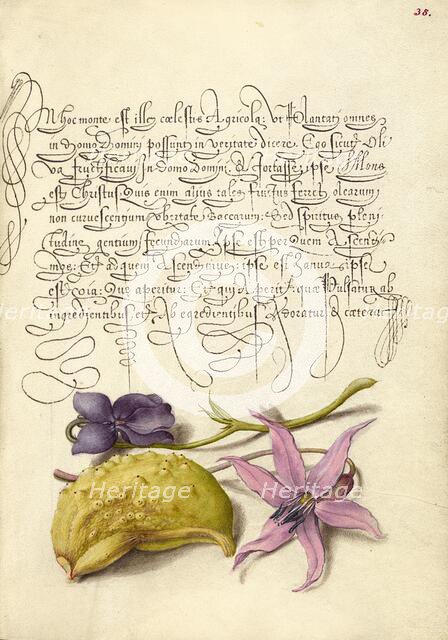 38.
In hoc monte est ille cœlestis Agricola: ut Plantati omnes
in Domo Domini possunt in veritate dicere. Ego sicut Oli
va fructificavi in Domo Domini. & fortasse ipse Mons
est Christus. Quis enim alius tales fructus feret olearum
non curvescentium ubertate Baccarum: Sed spiritus pleni
tudine gentium fecundarum Ipse est per quem Ascendi
mus: Et ad quem Ascendimus: ipse est Janua: ipse
est via: Quæ aperitur: Et qui Aperit: Quæ Pulsatur ab
ingredientibus: et Ab egredientibus Adoratur & cætera
Heritage Heritage
Heritage Heritage Heritage
Heritage Heritage